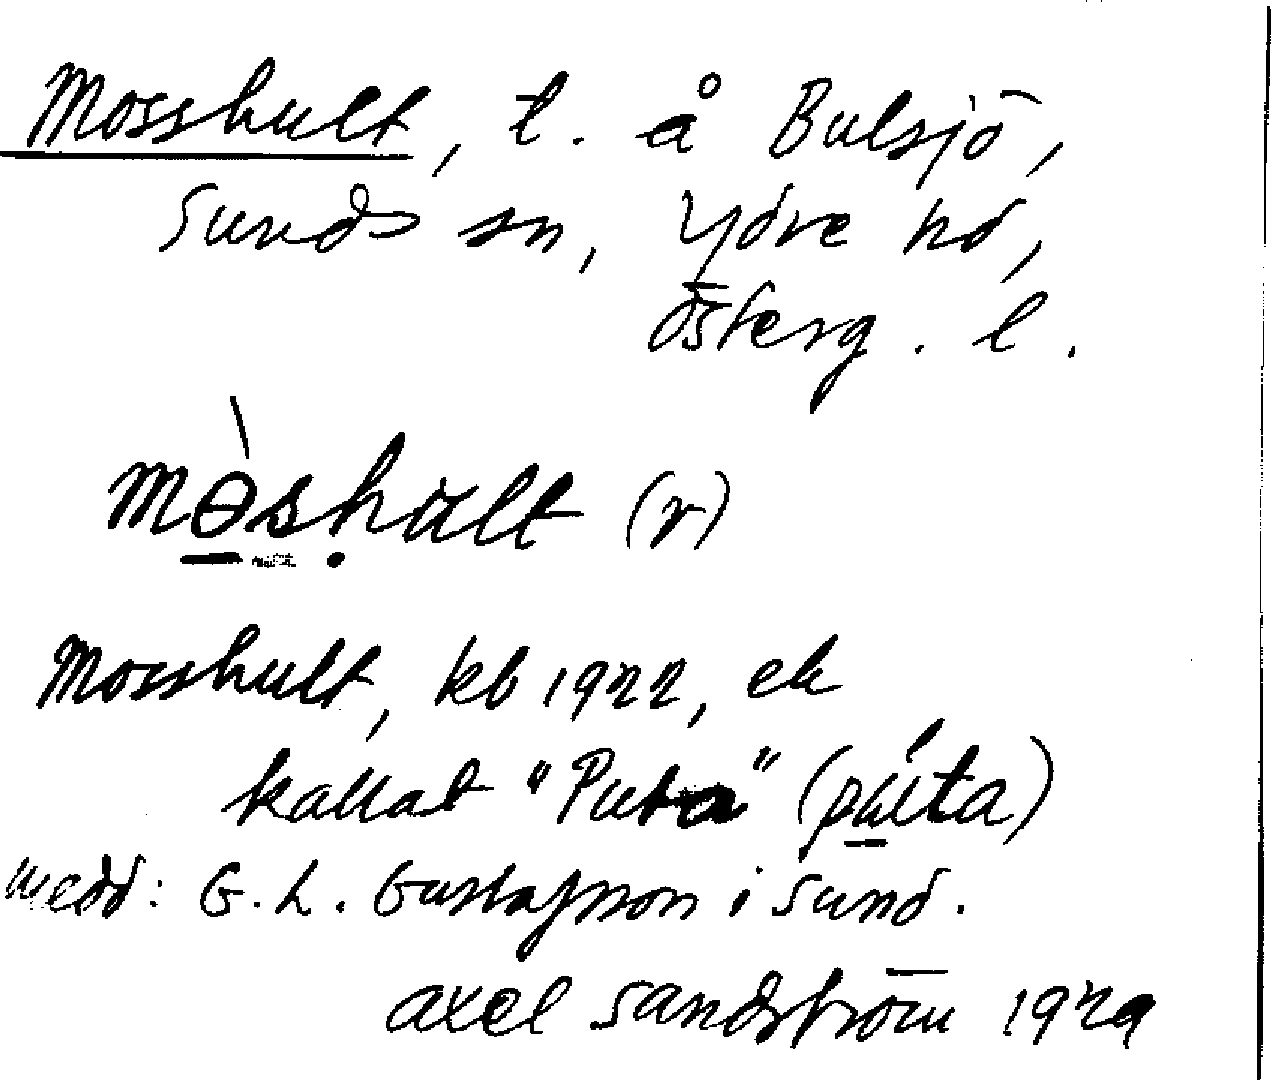 Mosshult, t. å Bulsjö,
Sunds sn, Ydre hd,
Österg. l.
mòshult (r)
Mosshult, kb 1922, ek
kallat "Puta" (púta)
medd: G. L. Gustafsson i Sund.
Axel Sandström 1929